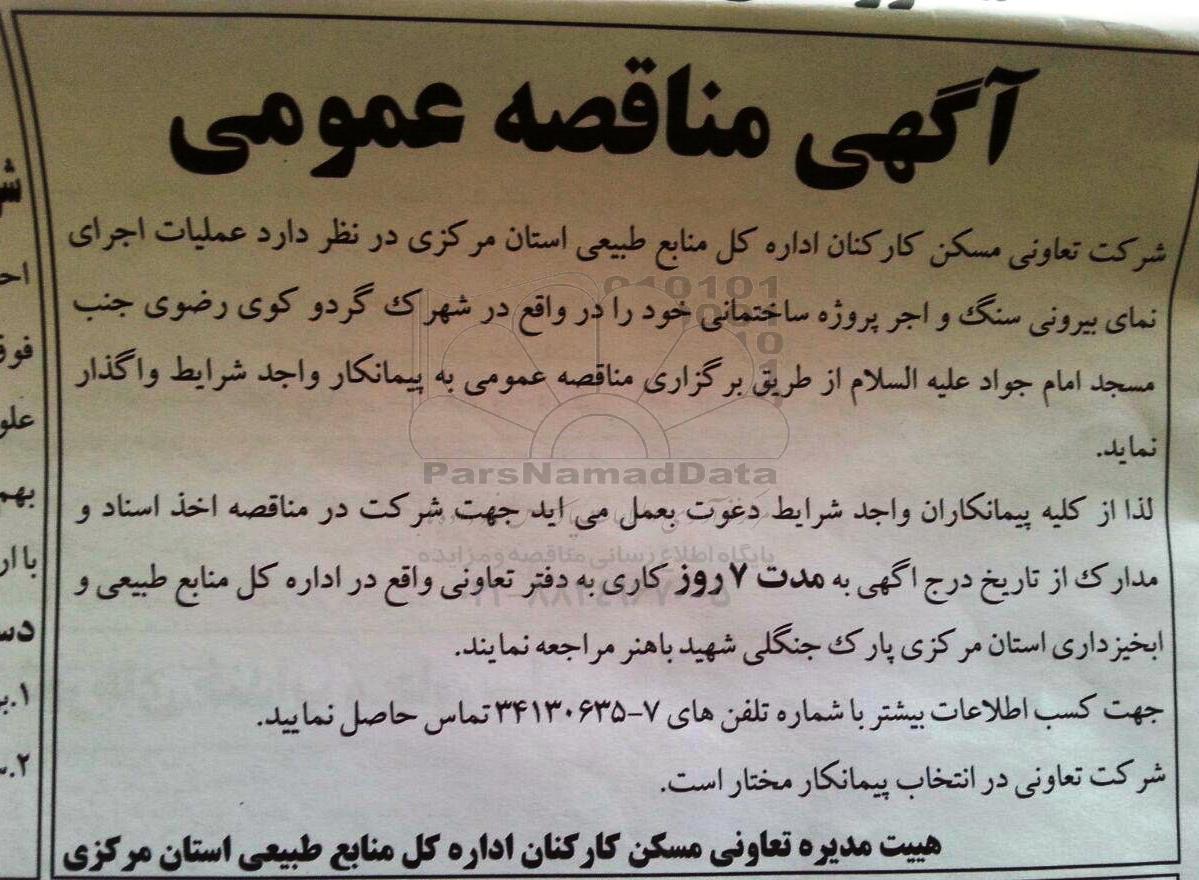 آگهی مناقصه عمومی
شرکت تعاونی مسکن کارکنان اداره کل منابع طبیعی استان مرکزی در نظر دارد عملیات اجرای
نمای بیرونی سنگ و اجر پروژه ساختمانی خود را در واقع در شهرک گردو کوی رضوی جنب
مسجد امام جواد علیه السلام از طریق برگزاری مناقصه عمومی به پیمانکار واجد شرایط واگذار
نماید.
لذا از کلیه پیمانکاران واجد شرایط دعوت بعمل می اید جهت شرکت در مناقصه اخذ اسناد و
مدارک از تاریخ درج اگهی به مدت ۷ روز کاری به دفتر تعاونی واقع در اداره کل منابع طبیعی و
ابخیزداری استان مرکزی پارک جنگلی شهید باهنر مراجعه نمایند.
جهت کسب اطلاعات بیشتر با شماره تلفن های ۷-۳۴۱۳۰۶۳۵ تماس حاصل نمایید.
شرکت تعاونی در انتخاب پیمانکار مختار است.
هییت مدیره تعاونی مسکن کارکنان اداره کل منابع طبیعی استان مرکزی
ParsNamadData
پایگاه اطلاع رسانی مناقصه و مزایده